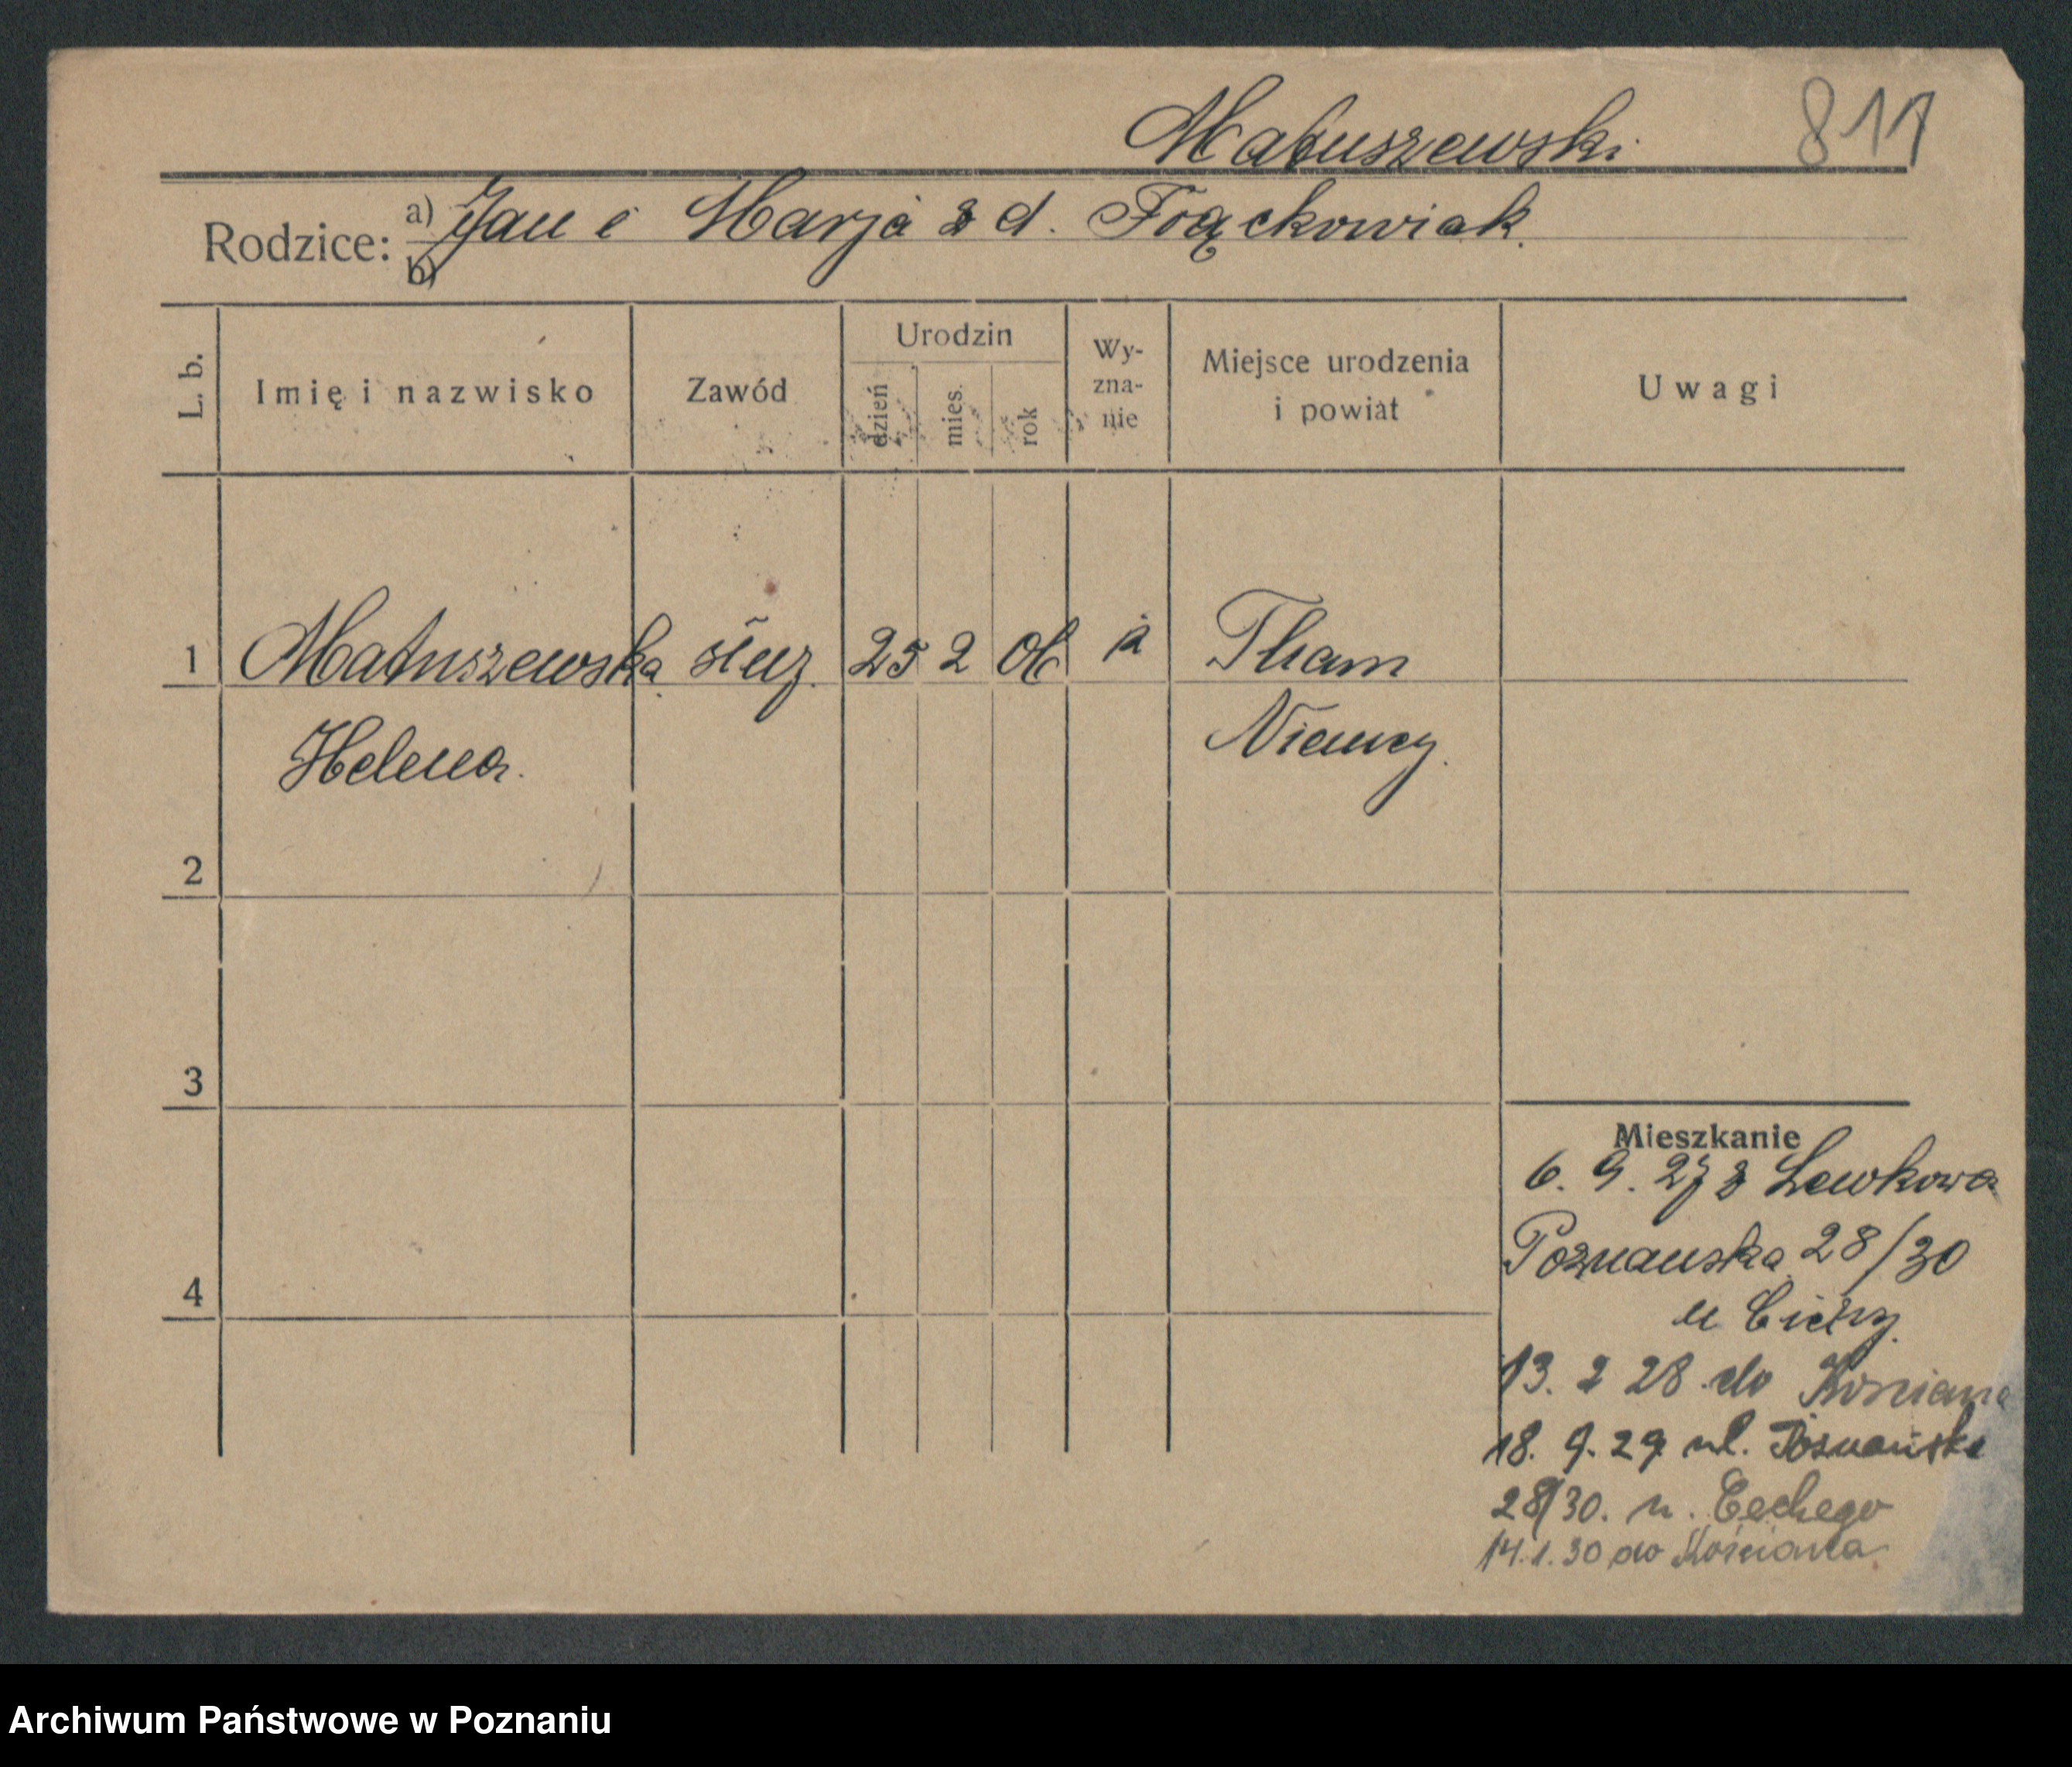 Matuszewski 811
Rodzice: a) Jan i Marja z d. Frąckowiak.
b)
L. b. Imię i nazwisko Zawód Urodzin dzień mies. rok Wy-zna-nie Miejsce urodzenia i powiat Uwagi
1 Matuszewska służ. 25 2 Tham
Helena. Niemcy.
2
3
Mieszkanie
6. 9. 27 z Lewkowa
4 Poznanska 28/30
u Cichy.
13. 2 28 do Kosciana
18. 9. 29 ul. Poznańska
28/30. u. Cichego
14.1.30 do Kościana
Archiwum Państwowe w Poznaniu